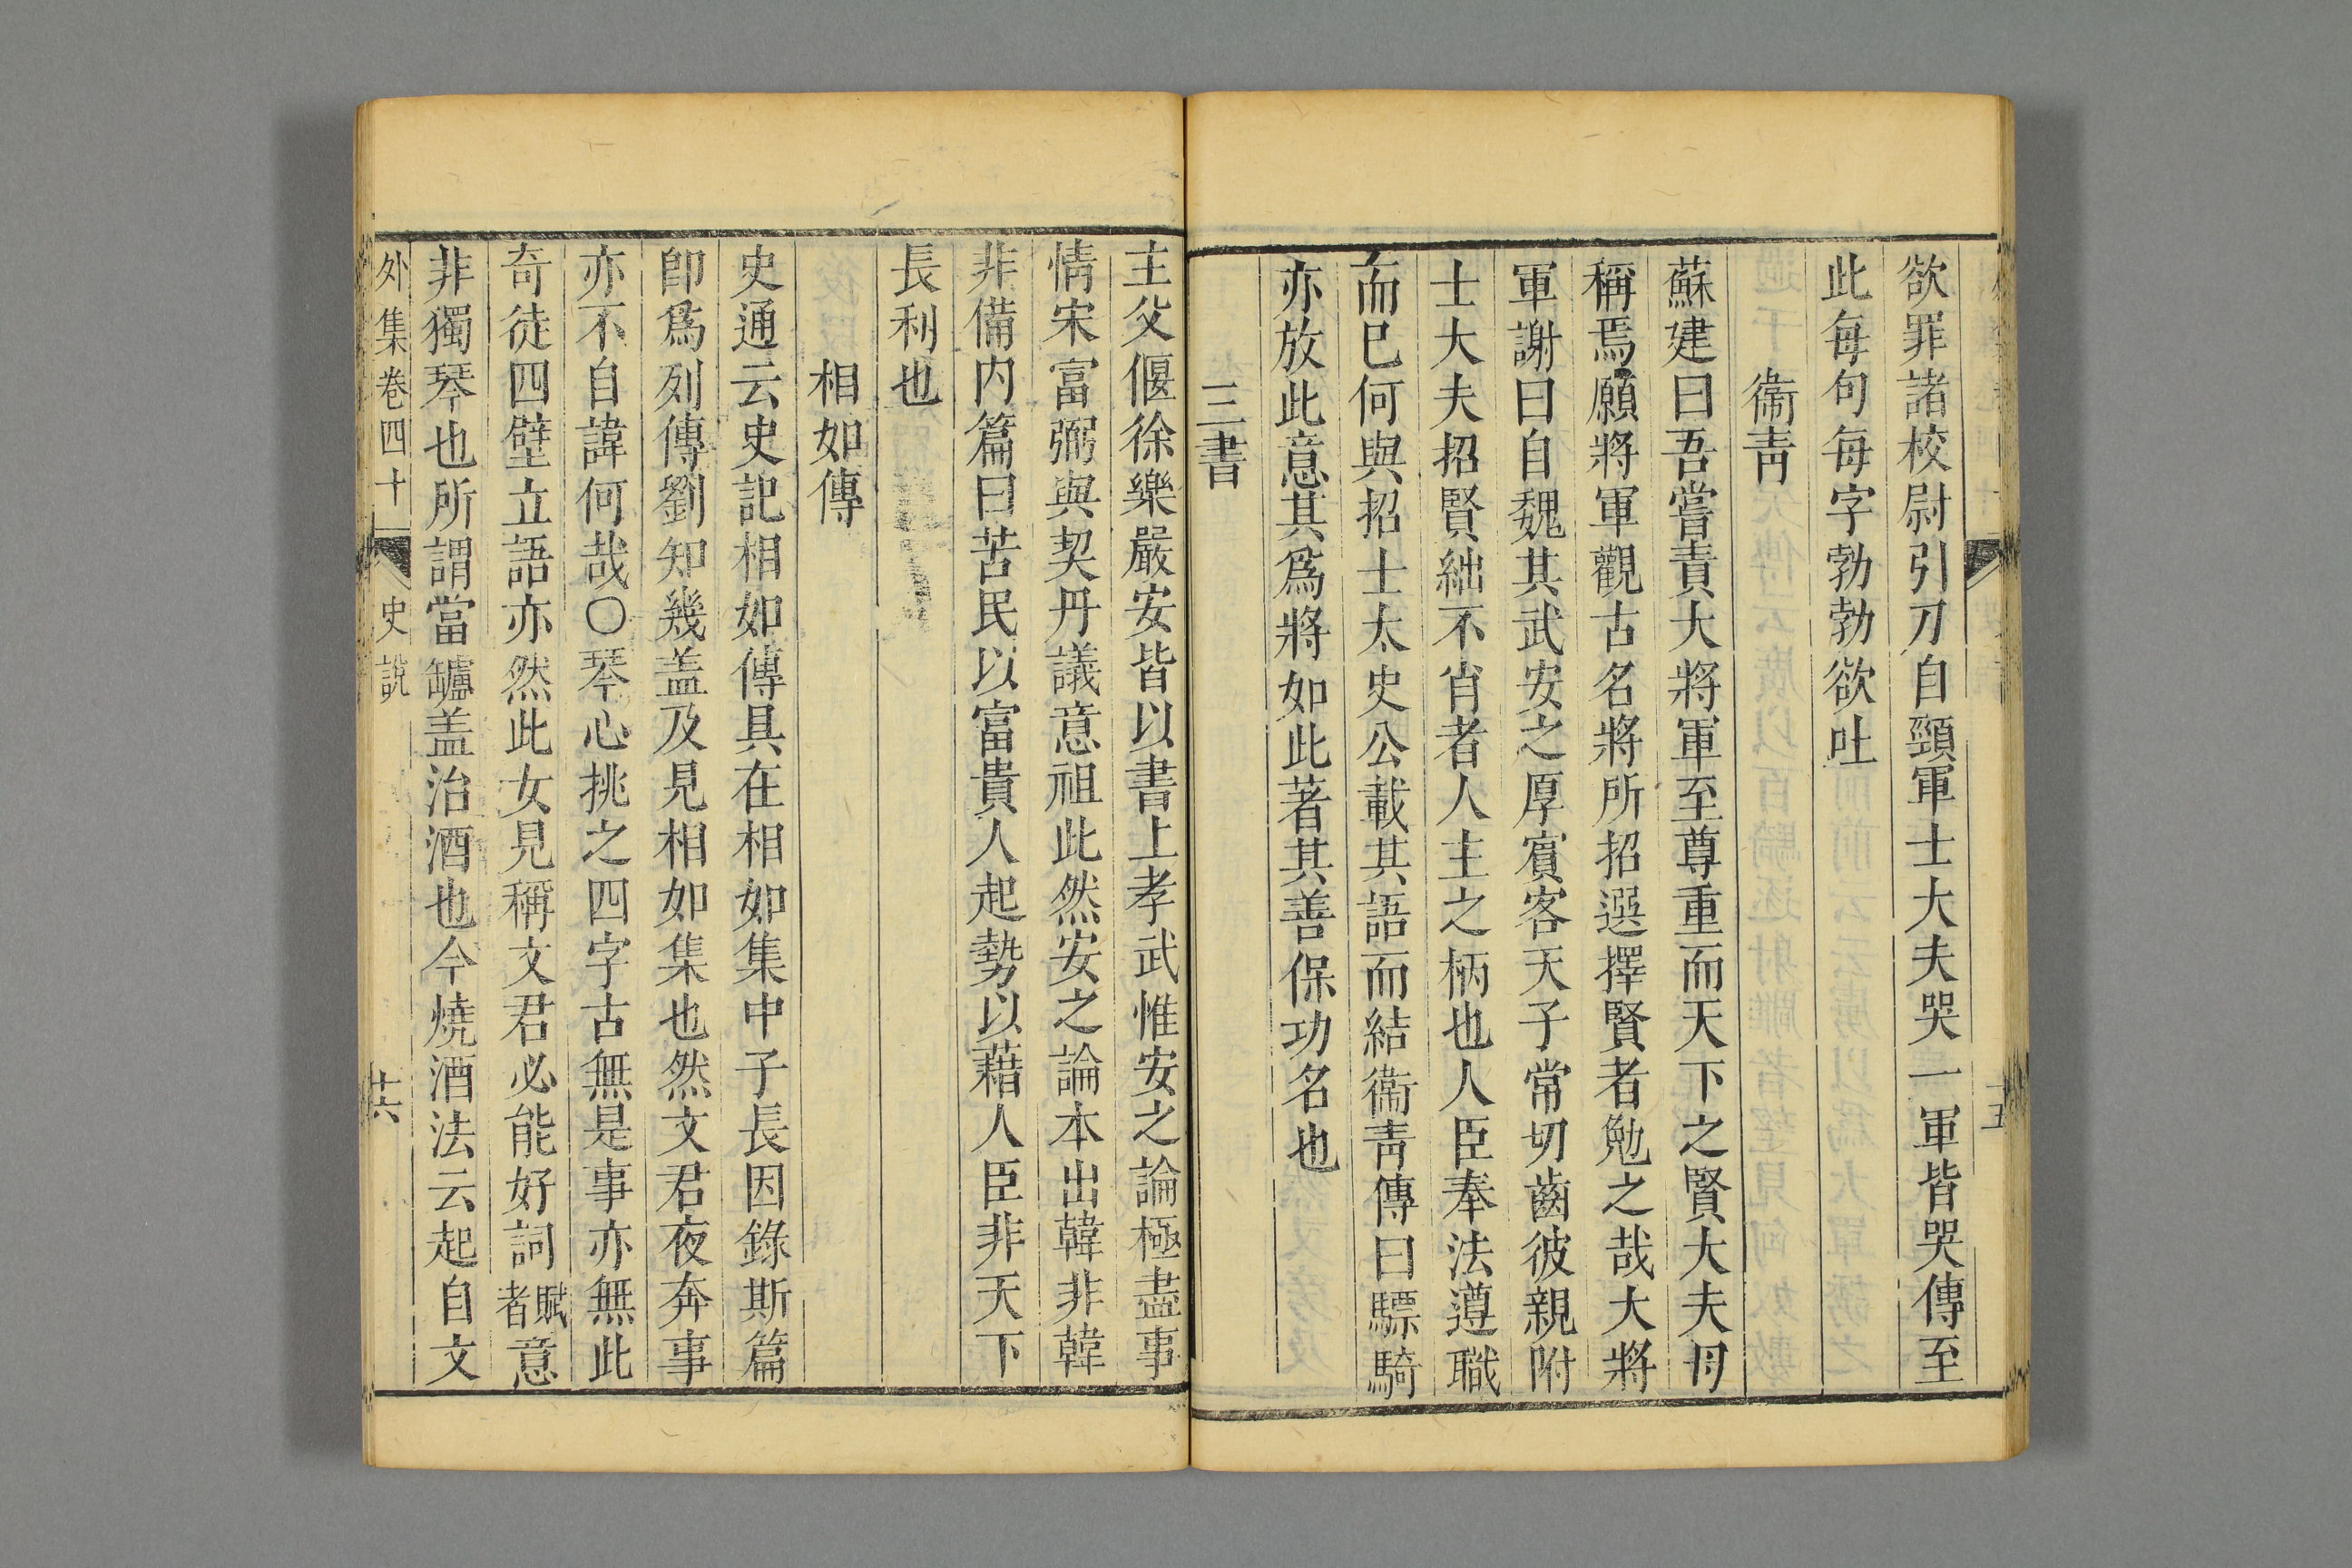 欲罪諸校尉引刀自頸軍士大夫哭一軍皆哭傳至
此每句每字勃勃欲吐
衞靑
蘇建曰吾嘗責大將軍至尊重而天下之賢大夫毋
稱焉願將軍觀古名將所招選擇賢者勉之哉大將
軍謝曰自魏其武安之厚賓客天子常切齒彼親附
士大夫招賢絀不肖者人主之柄也人臣奉法遵職
而已何與招士太史公載其語而結衞靑傳曰驃騎
亦放此意其爲將如此著其善保功名也
三書
主父偃徐樂嚴安皆以書上孝武惟安之論極盡事
情宋富弼與契丹議意祖此然安之論本出韓非韓
非備内篇曰苦民以富貴人起勢以藉人臣非天下
長利也
相如傳
史通云史記相如傳具在相如集中子長因錄斯篇
卽爲列傳劉知幾盖及見相如集也然文君夜奔事
亦不自諱何哉○琴心挑之四字古無是事亦無此
奇徒四壁立語亦然此女見稱文君必能好詞賦者意
非獨琴也所謂當罏盖治酒也今燒酒法云起自文
外集卷四十 史說 十六